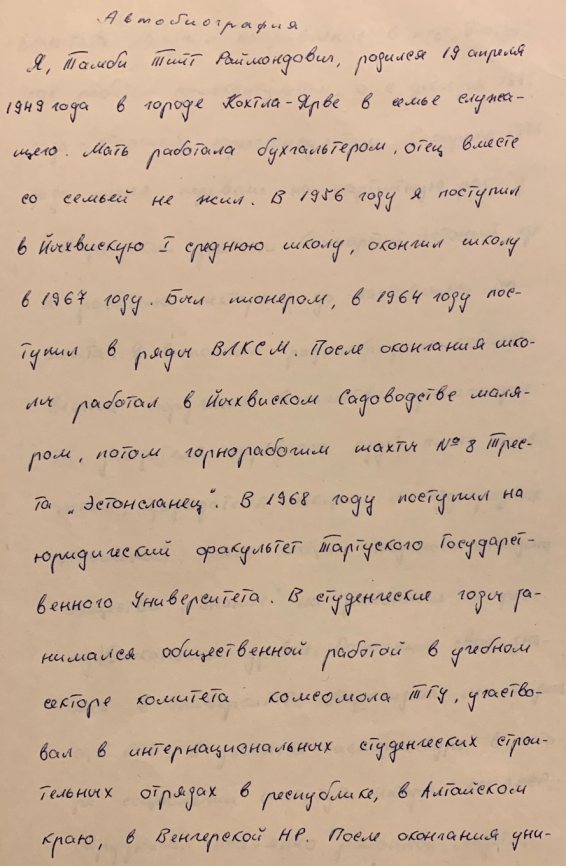 Автобиография
Я, Тамби Тийт Раймондович, родился 19 апреля
1949 года в городе Кохтла-Ярве в семье служа-
щего. Мать работала бухгалтером, отец вместе
со семьей не жил. В 1956 году я поступил
в Йыхвискую I среднюю школу, окончил школу
в 1967 году. Был пионером, в 1964 году пос-
тупил в ряды ВЛКСМ. После окончания шко-
лы работал в Йыхвиском Садоводстве маля-
ром, потом горнорабочим шахты № 8 Трес-
та „Эстонсланец". В 1968 году поступил на
юридический факультет Тартуского Государст-
венного Университета. В студенческие годы за-
нимался общественной работой в учебном
секторе комитета комсомола ТГУ, участво-
вал в интернациональных студенческих строи-
тельных отрядах в республике, в Алтайском
краю, в Венгерской НР. После окончания уни-